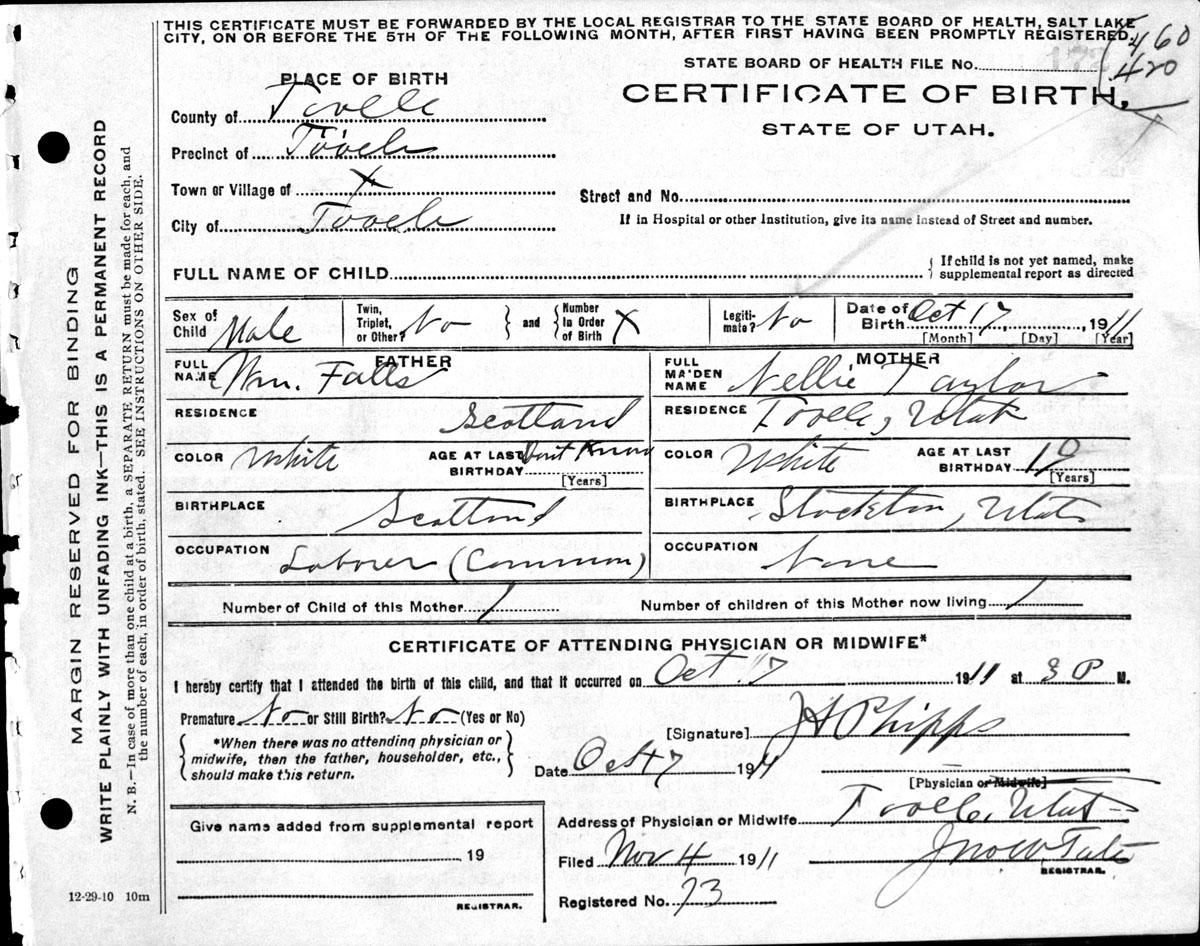 THIS CERTIFICATE MUST BE FORWARDED BY THE LOCAL REGISTRAR TO THE STATE BOARD OF HEALTH, SALT LAKE
CITY, ON OR BEFORE THE 5TH OF THE FOLLOWING MONTH, AFTER FIRST HAVING BEEN PROMPTLY REGISTERED.
460
420
STATE BOARD OF HEALTH FILE No.
CERTIFICATE OF BIRTH,
STATE OF UTAH.
PLACE OF BIRTH
County of Tooele
Precinct of Tooele
Town or Village of X
City of Tooele
Street and No.
If in Hospital or other Institution, give its name instead of Street and number.
FULL NAME OF CHILD
{ If child is not yet named, make
supplemental report as directed
Sex of Child Male
Twin, Triplet, or Other? No
} and { Number In Order of Birth X
Legiti-mate? No
Date of Birth Oct 17, 1911
[Month] [Day] [Year]
FATHER
FULL NAME Wm. Falls
RESIDENCE Scotland
COLOR White
AGE AT LAST BIRTHDAY Dont Know
[Years]
BIRTHPLACE Scotland
OCCUPATION Laborer (Common)
MOTHER
FULL MAIDEN NAME Nellie Taylor
RESIDENCE Tooele, Utah
COLOR White
AGE AT LAST BIRTHDAY
[Years]
BIRTHPLACE Stockton, Utah
OCCUPATION None
Number of Child of this Mother 1
Number of children of this Mother now living 1
CERTIFICATE OF ATTENDING PHYSICIAN OR MIDWIFE*
I hereby certify that I attended the birth of this child, and that it occurred on Oct. 17 1911 at 3 P M.
Premature No or Still Birth? No (Yes or No)
{ *When there was no attending physician or
midwife, then the father, householder, etc.,
should make this return. }
[Signature] J H Phipps
Date Oct 17 1911
[Physician or Midwife]
Address of Physician or Midwife Tooele, Utah
Give name added from supplemental report
, 19
REGISTRAR.
Filed Nov 4 1911
Jno W. Tate
REGISTRAR.
Registered No. 73
12-29-10 10m
MARGIN RESERVED FOR BINDING
WRITE PLAINLY WITH UNFADING INK—THIS IS A PERMANENT RECORD
N. B.—In case of more than one child at a birth, a SEPARATE RETURN must be made for each, and
the number of each, in order of birth, stated. SEE INSTRUCTIONS ON OTHER SIDE.